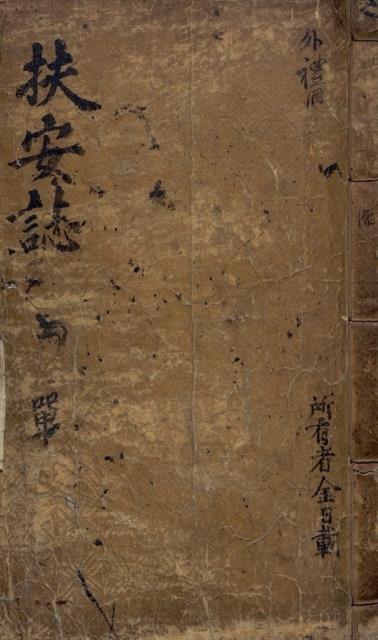 外禮洞
所有者金 載
扶安誌
單